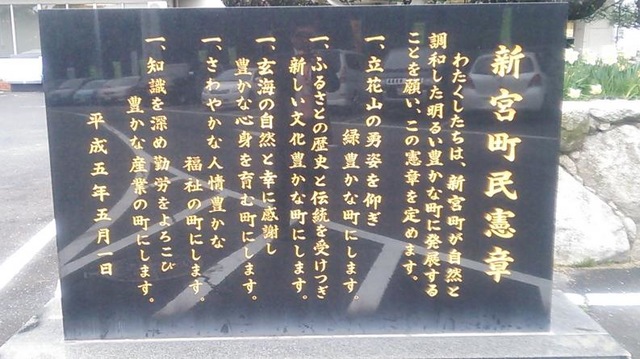 新宮町民憲章
わたくしたちは、新宮町が自然と
調和した明るい豊かな町に発展する
ことを願い、この憲章を定めます。
一、立花山の勇姿を仰ぎ
緑豊かな町にします。
一、ふるさとの歴史と伝統を受けつぎ
新しい文化豊かな町にします。
一、玄海の自然と幸に感謝し
豊かな心身を育む町にします。
一、さわやかな人情豊かな
福祉の町にします。
一、知識を深め勤労をよろこび
豊かな産業の町にします。
平成五年五月一日